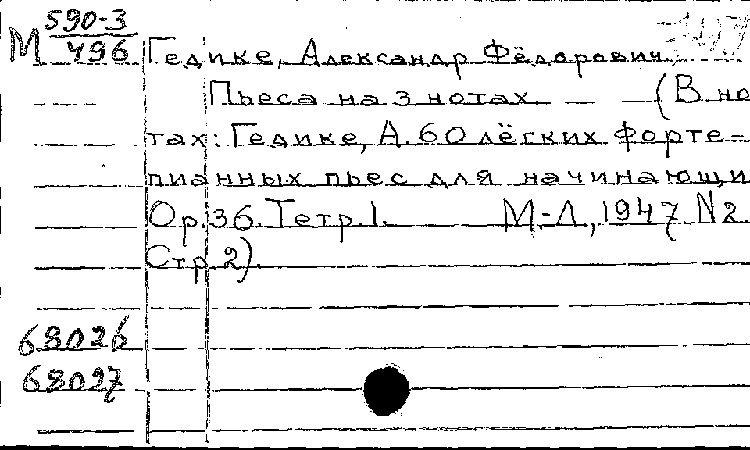 590-3
М 496 Гедике, Александр Фёдорович.
Пьеса на 3 нотах. — (В но
тах: Гедике, А. 60 лёгких форте-
пианных пьес для начинающи
Ор. 36. Тетр. 1. М.-Л., 1947 N2.
Стр 2).
68026
68027